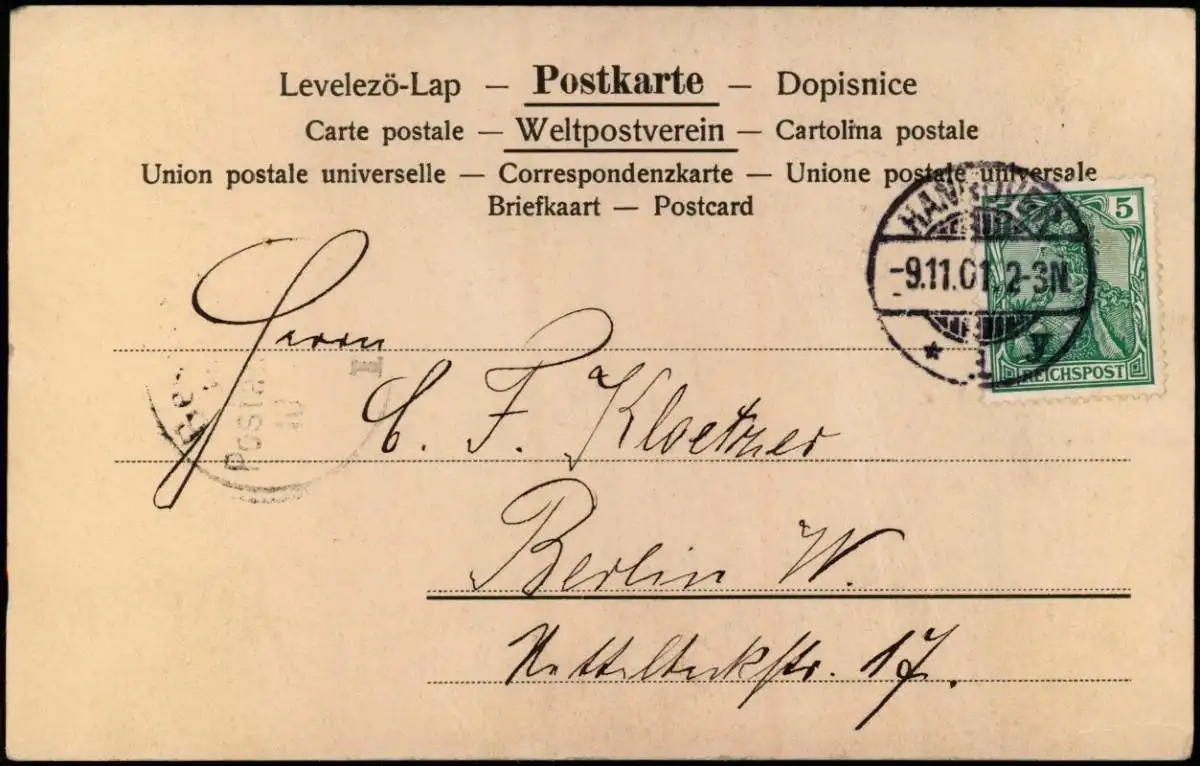 Levelezö-Lap — Postkarte — Dopisnice
Carte postale — Weltpostverein — Cartolina postale
Union postale universelle — Correspondenzkarte — Unione postale universale
Briefkaart — Postcard
HANNOVER
-9.11.01. 2-3N.
* 1 y
5 5
REICHSPOST
Herrn
C. F. Kloetzner
Berlin W.
Nettelbeckstr. 17.
Posta